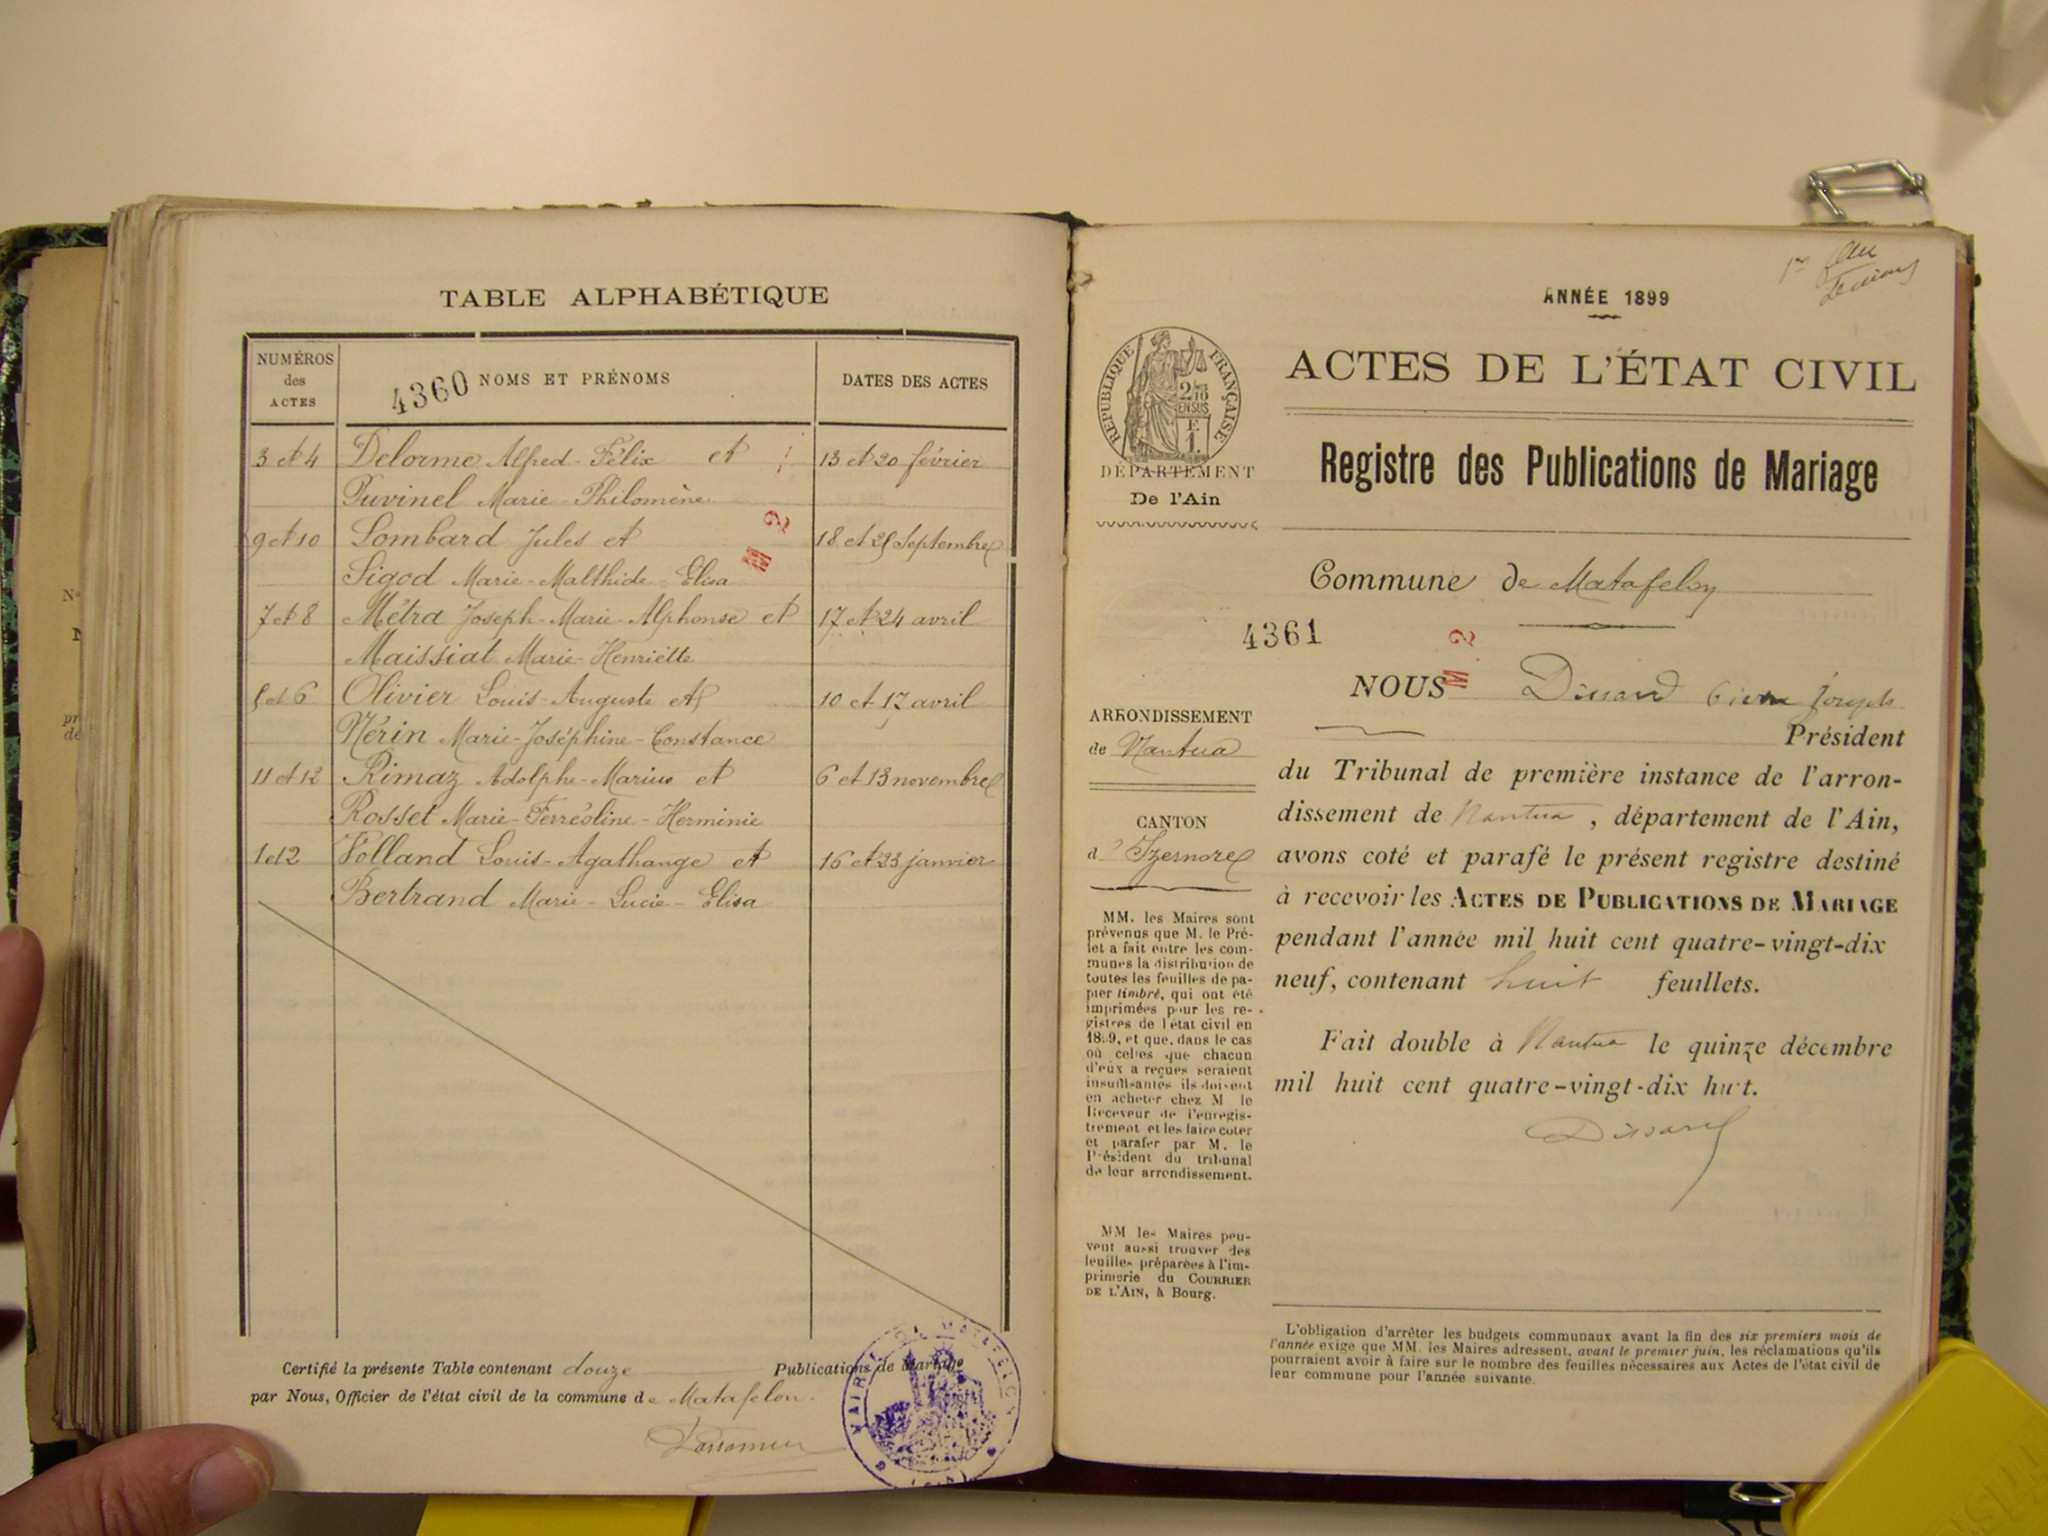 TABLE ALPHABÉTIQUE
NUMÉROS des ACTES
4360 NOMS ET PRÉNOMS
DATES DES ACTES
3 et 4 Delorme Alfred-Félix et 13 et 20 février
Puvinel Marie-Philomène
M 2
9 et 10 Lombard Jules et 18 et 25 Septembre
Sigod Marie-Malthide-Elisa
7 et 8 Métra Joseph-Marie-Alphonse et 17 et 24 avril
Maissiat Marie-Henriette
5 et 6 Olivier Louis-Auguste et 10 et 17 avril
Nérin Marie-Joséphine-Constance
11 et 12 Rimaz Adolphe-Marius et 6 et 13 novembre
Rosset Marie-Ferréoline-Herminie
1 et 2 Volland Louis-Agathange et 16 et 23 janvier
Bertrand Marie-Lucie-Elisa
Certifié la présente Table contenant douze Publications de Mariage
par Nous, Officier de l'état civil de la commune de Matafelon.
ANNÉE 1899
RÉPUBLIQUE FRANÇAISE
ACTES DE L'ÉTAT CIVIL
DÉPARTEMENT
De l'Ain
Registre des Publications de Mariage
Commune de Matafelon
4361
M 2
NOUS Dissard Pierre Joseph
Président
du Tribunal de première instance de l'arron-
dissement de Nantua, département de l'Ain,
avons coté et parafé le présent registre destiné
à recevoir les ACTES DE PUBLICATIONS DE MARIAGE
pendant l'année mil huit cent quatre-vingt-dix
neuf, contenant huit feuillets.
Fait double à Nantua le quinze décembre
mil huit cent quatre-vingt-dix huit.
Dissard
ARRONDISSEMENT
de Nantua
CANTON
d'Izernore
MM. les Maires sont
prévenus que M. le Pré-
fet a fait entre les com-
munes la distribution de
toutes les feuilles de pa-
pier timbré, qui ont été
imprimées pour les re-
gistres de l'état civil en
1899, et que, dans le cas
où celles que chacun
d'eux a reçues seraient
insuffisantes ils doivent
en acheter chez M le
Receveur de l'enregis-
trement et les faire coter
et parafer par M. le
Président du tribunal
de leur arrondissement.
MM les Maires peu-
vent aussi trouver des
feuilles préparées à l'im-
primerie du COURRIER
DE L'AIN, à Bourg.
L'obligation d'arrêter les budgets communaux avant la fin des six premiers mois de
l'année exige que MM. les Maires adressent, avant le premier juin, les réclamations qu'ils
pourraient avoir à faire sur le nombre des feuilles nécessaires aux Actes de l'état civil de
leur commune pour l'année suivante.